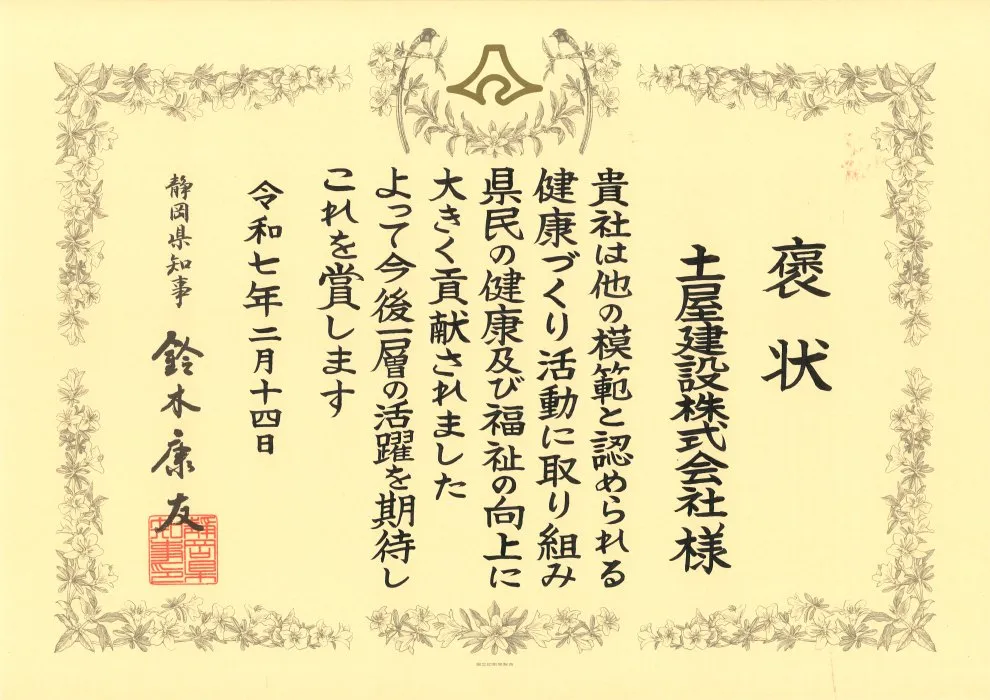 褒状
土屋建設株式会社 様
貴社は他の模範と認められる
健康づくり活動に取り組み
県民の健康及び福祉の向上に
大きく貢献されました
よって今後一層の活躍を期待し
これを賞します
令和七年二月十四日
静岡県知事 鈴木康友
静岡県
知事印